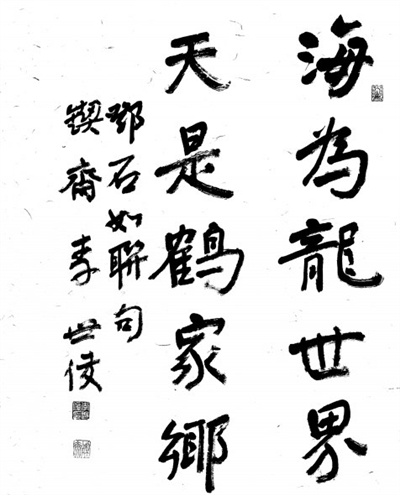 海為龍世界
天是鶴家鄉
鄧石如聯句
鍥齋李世俊